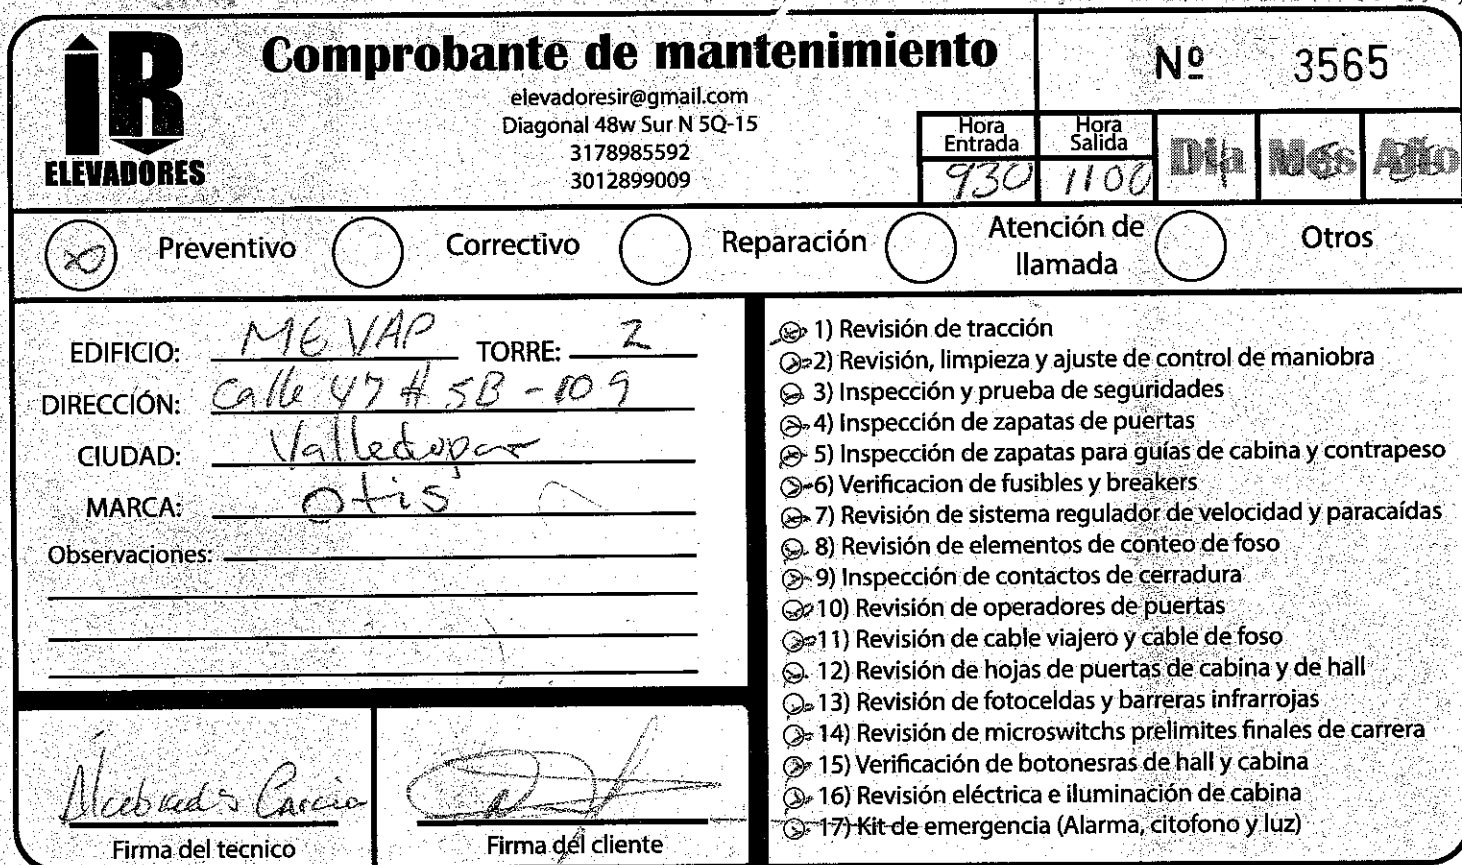 iR
ELEVADORES
Comprobante de mantenimiento
elevadoresir@gmail.com
Diagonal 48w Sur N 5Q-15
3178985592
3012899009
Nº 3565
Hora Entrada
930
Hora Salida
1100
Dia Mes Año
Preventivo
Correctivo
Reparación
Atención de
llamada
Otros
EDIFICIO: MEVAP TORRE: 2
DIRECCIÓN: Calle 47 # 5B - 109
CIUDAD: Valledupar
MARCA: Otis
Observaciones:
1) Revisión de tracción
2) Revisión, limpieza y ajuste de control de maniobra
3) Inspección y prueba de seguridades
4) Inspección de zapatas de puertas
5) Inspección de zapatas para guías de cabina y contrapeso
6) Verificacion de fusibles y breakers
7) Revisión de sistema regulador de velocidad y paracaídas
8) Revisión de elementos de conteo de foso
9) Inspección de contactos de cerradura
10) Revisión de operadores de puertas
11) Revisión de cable viajero y cable de foso
12) Revisión de hojas de puertas de cabina y de hall
13) Revisión de fotoceldas y barreras infrarrojas
14) Revisión de microswitchs prelimites finales de carrera
15) Verificación de botonesras de hall y cabina
16) Revisión eléctrica e iluminación de cabina
17) Kit de emergencia (Alarma, citofono y luz)
Garcia
Firma del tecnico
Firma del cliente